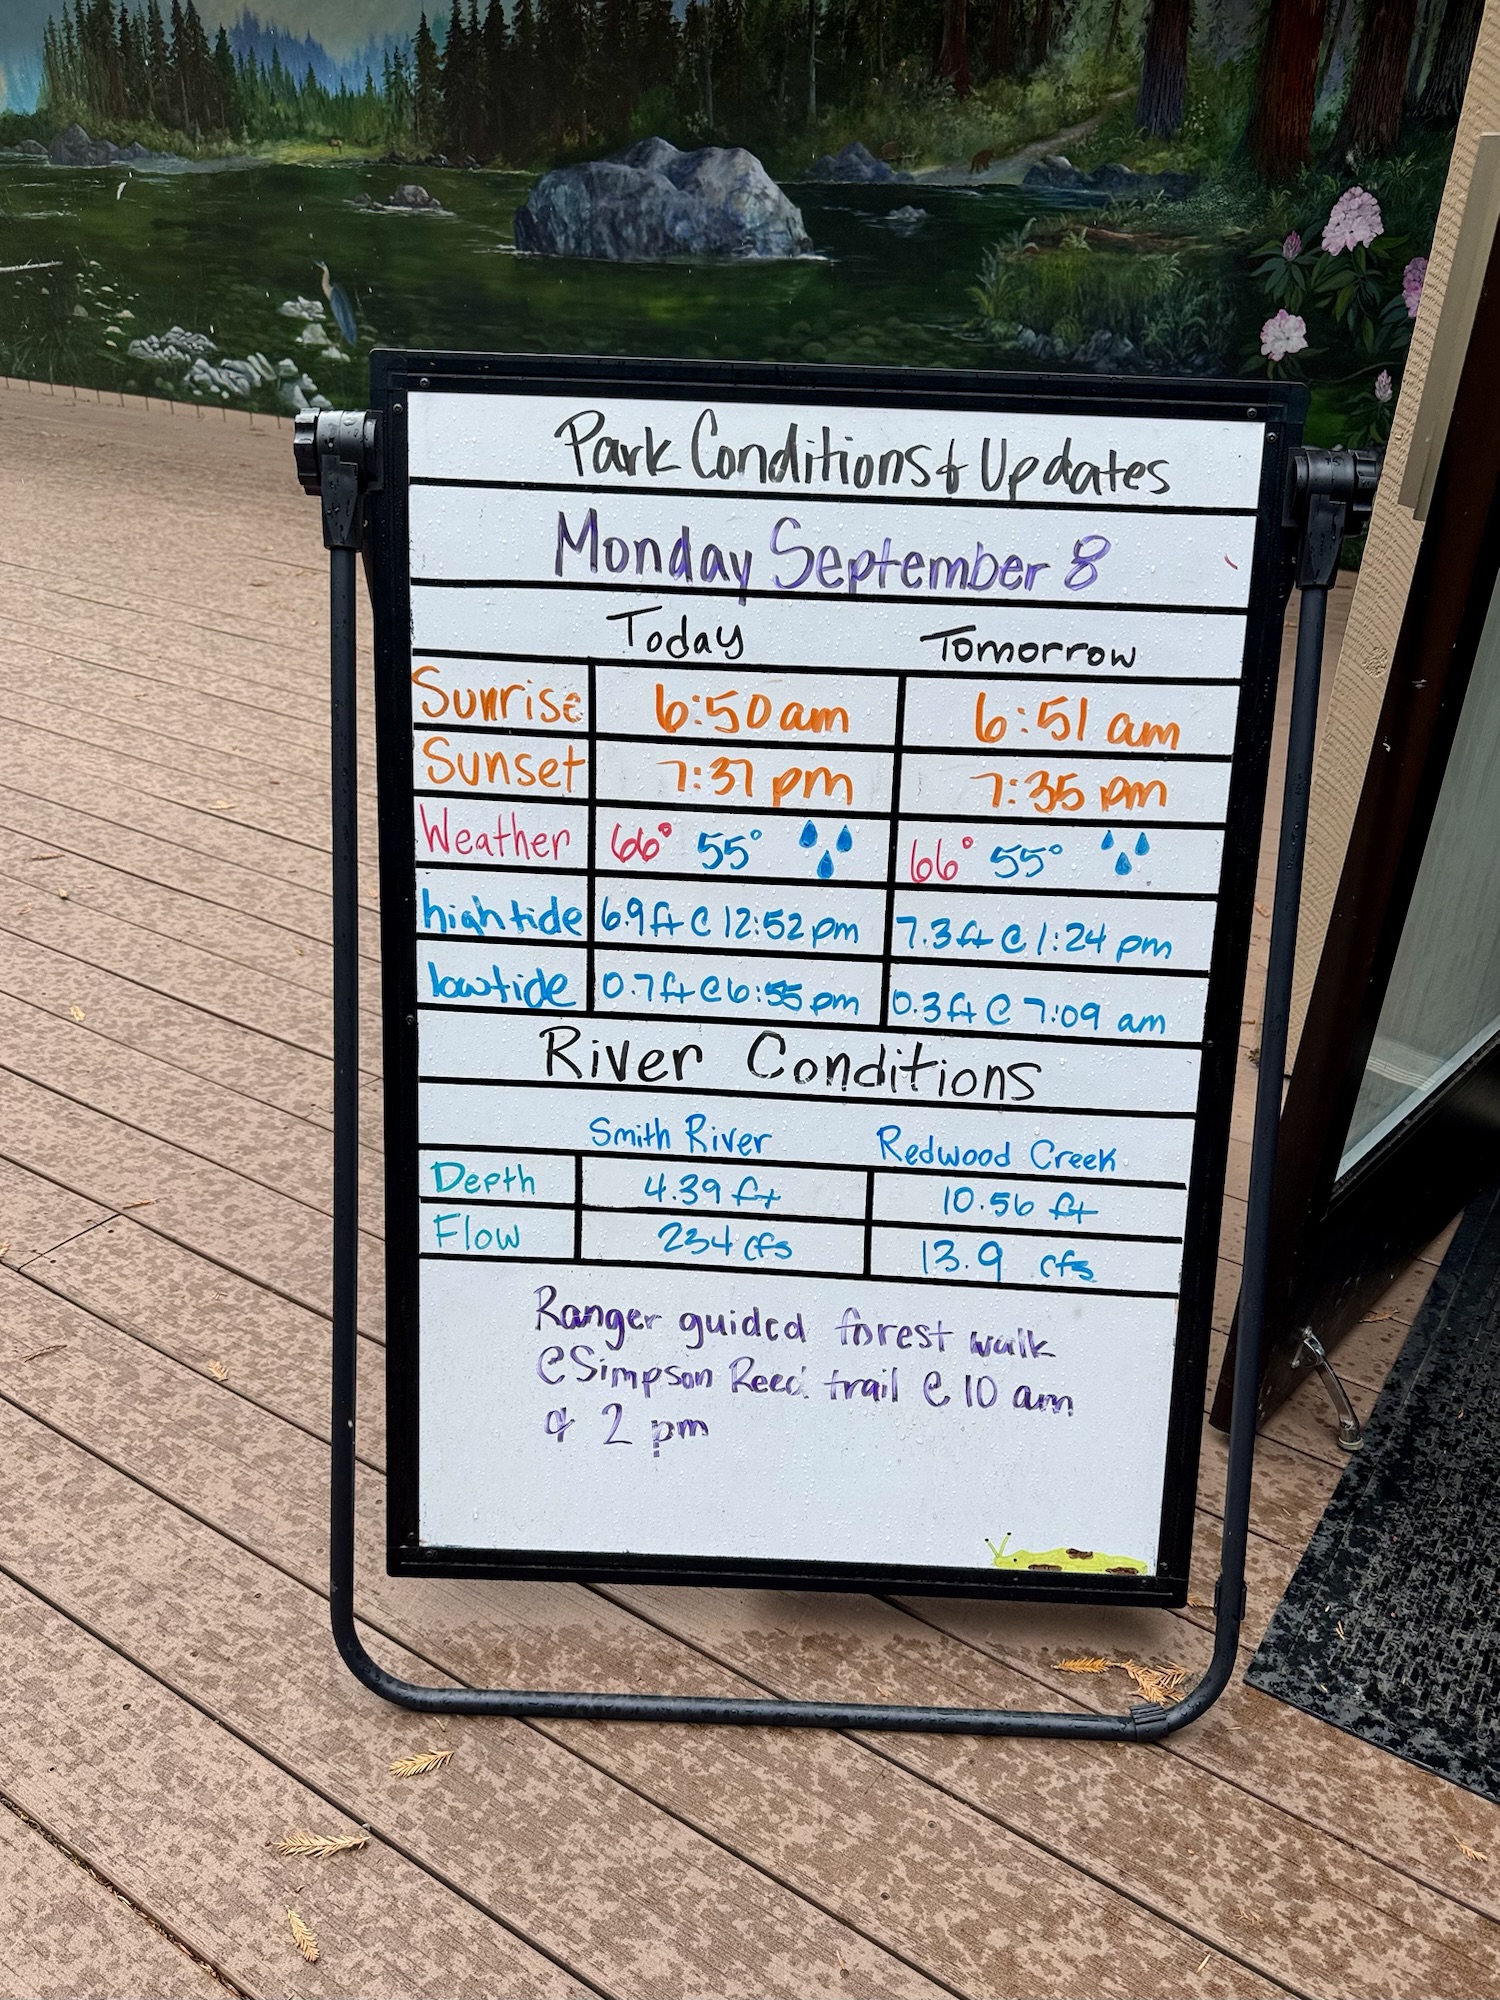 Park Conditions & Updates
Monday September 8
Today Tomorrow
Sunrise 6:50 am 6:51 am
Sunset 7:37 pm 7:35 pm
Weather 66° 55° 66° 55°
high tide 6.9 ft @ 12:52 pm 7.3 ft @ 1:24 pm
low tide 0.7 ft @ 6:55 pm 0.3 ft @ 7:09 am
River Conditions
Smith River Redwood Creek
Depth 4.39 ft 10.56 ft
Flow 234 cfs 13.9 cfs
Ranger guided forest walk
@ Simpson Reed trail @ 10 am
& 2 pm